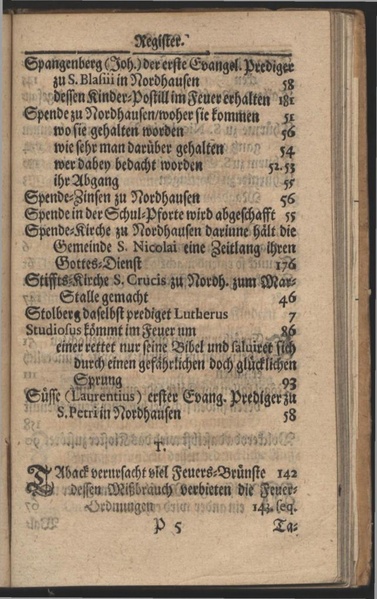 Register.
Spangenberg (Joh.) der erste Evangel. Prediger
zu S. Blasiii in Nordhausen 58
dessen Kinder-Postill im Feuer erhalten 181
Spende zu Nordhausen/woher sie kommen 51
wo sie gehalten worden 56
wie sehr man darüber gehalten 54
wer dabey bedacht worden 52.53
ihr Abgang 55
Spende-Zinsen zu Nordhausen 56
Spende in der Schul-Pforte wird abgeschafft 55
Spende-Kirche zu Nordhausen dariune hält die
Gemeinde S. Nicolai eine Zeitlang ihren
Gottes-Dienst 176
Stiffts-Kirche S. Crucis zu Nordh. zum Mar-
Stalle gemacht 46
Stolberg daselbst prediget Lutherus 7
Studiosus kömmt im Feuer um 86
einer rettet nur seine Bibel und salairet sich
durch einen gefährlichen doch glücklichen
Sprung 93
Süsse (Laurentius) erster Evang. Prediger zu
S. Petri in Nordhausen 58
T.
TAback verursacht viel Feuers-Brünste 142
dessen Mißbrauch verbieten die Feuer-
Ordnungen 143. seq.
P 5 Ta-